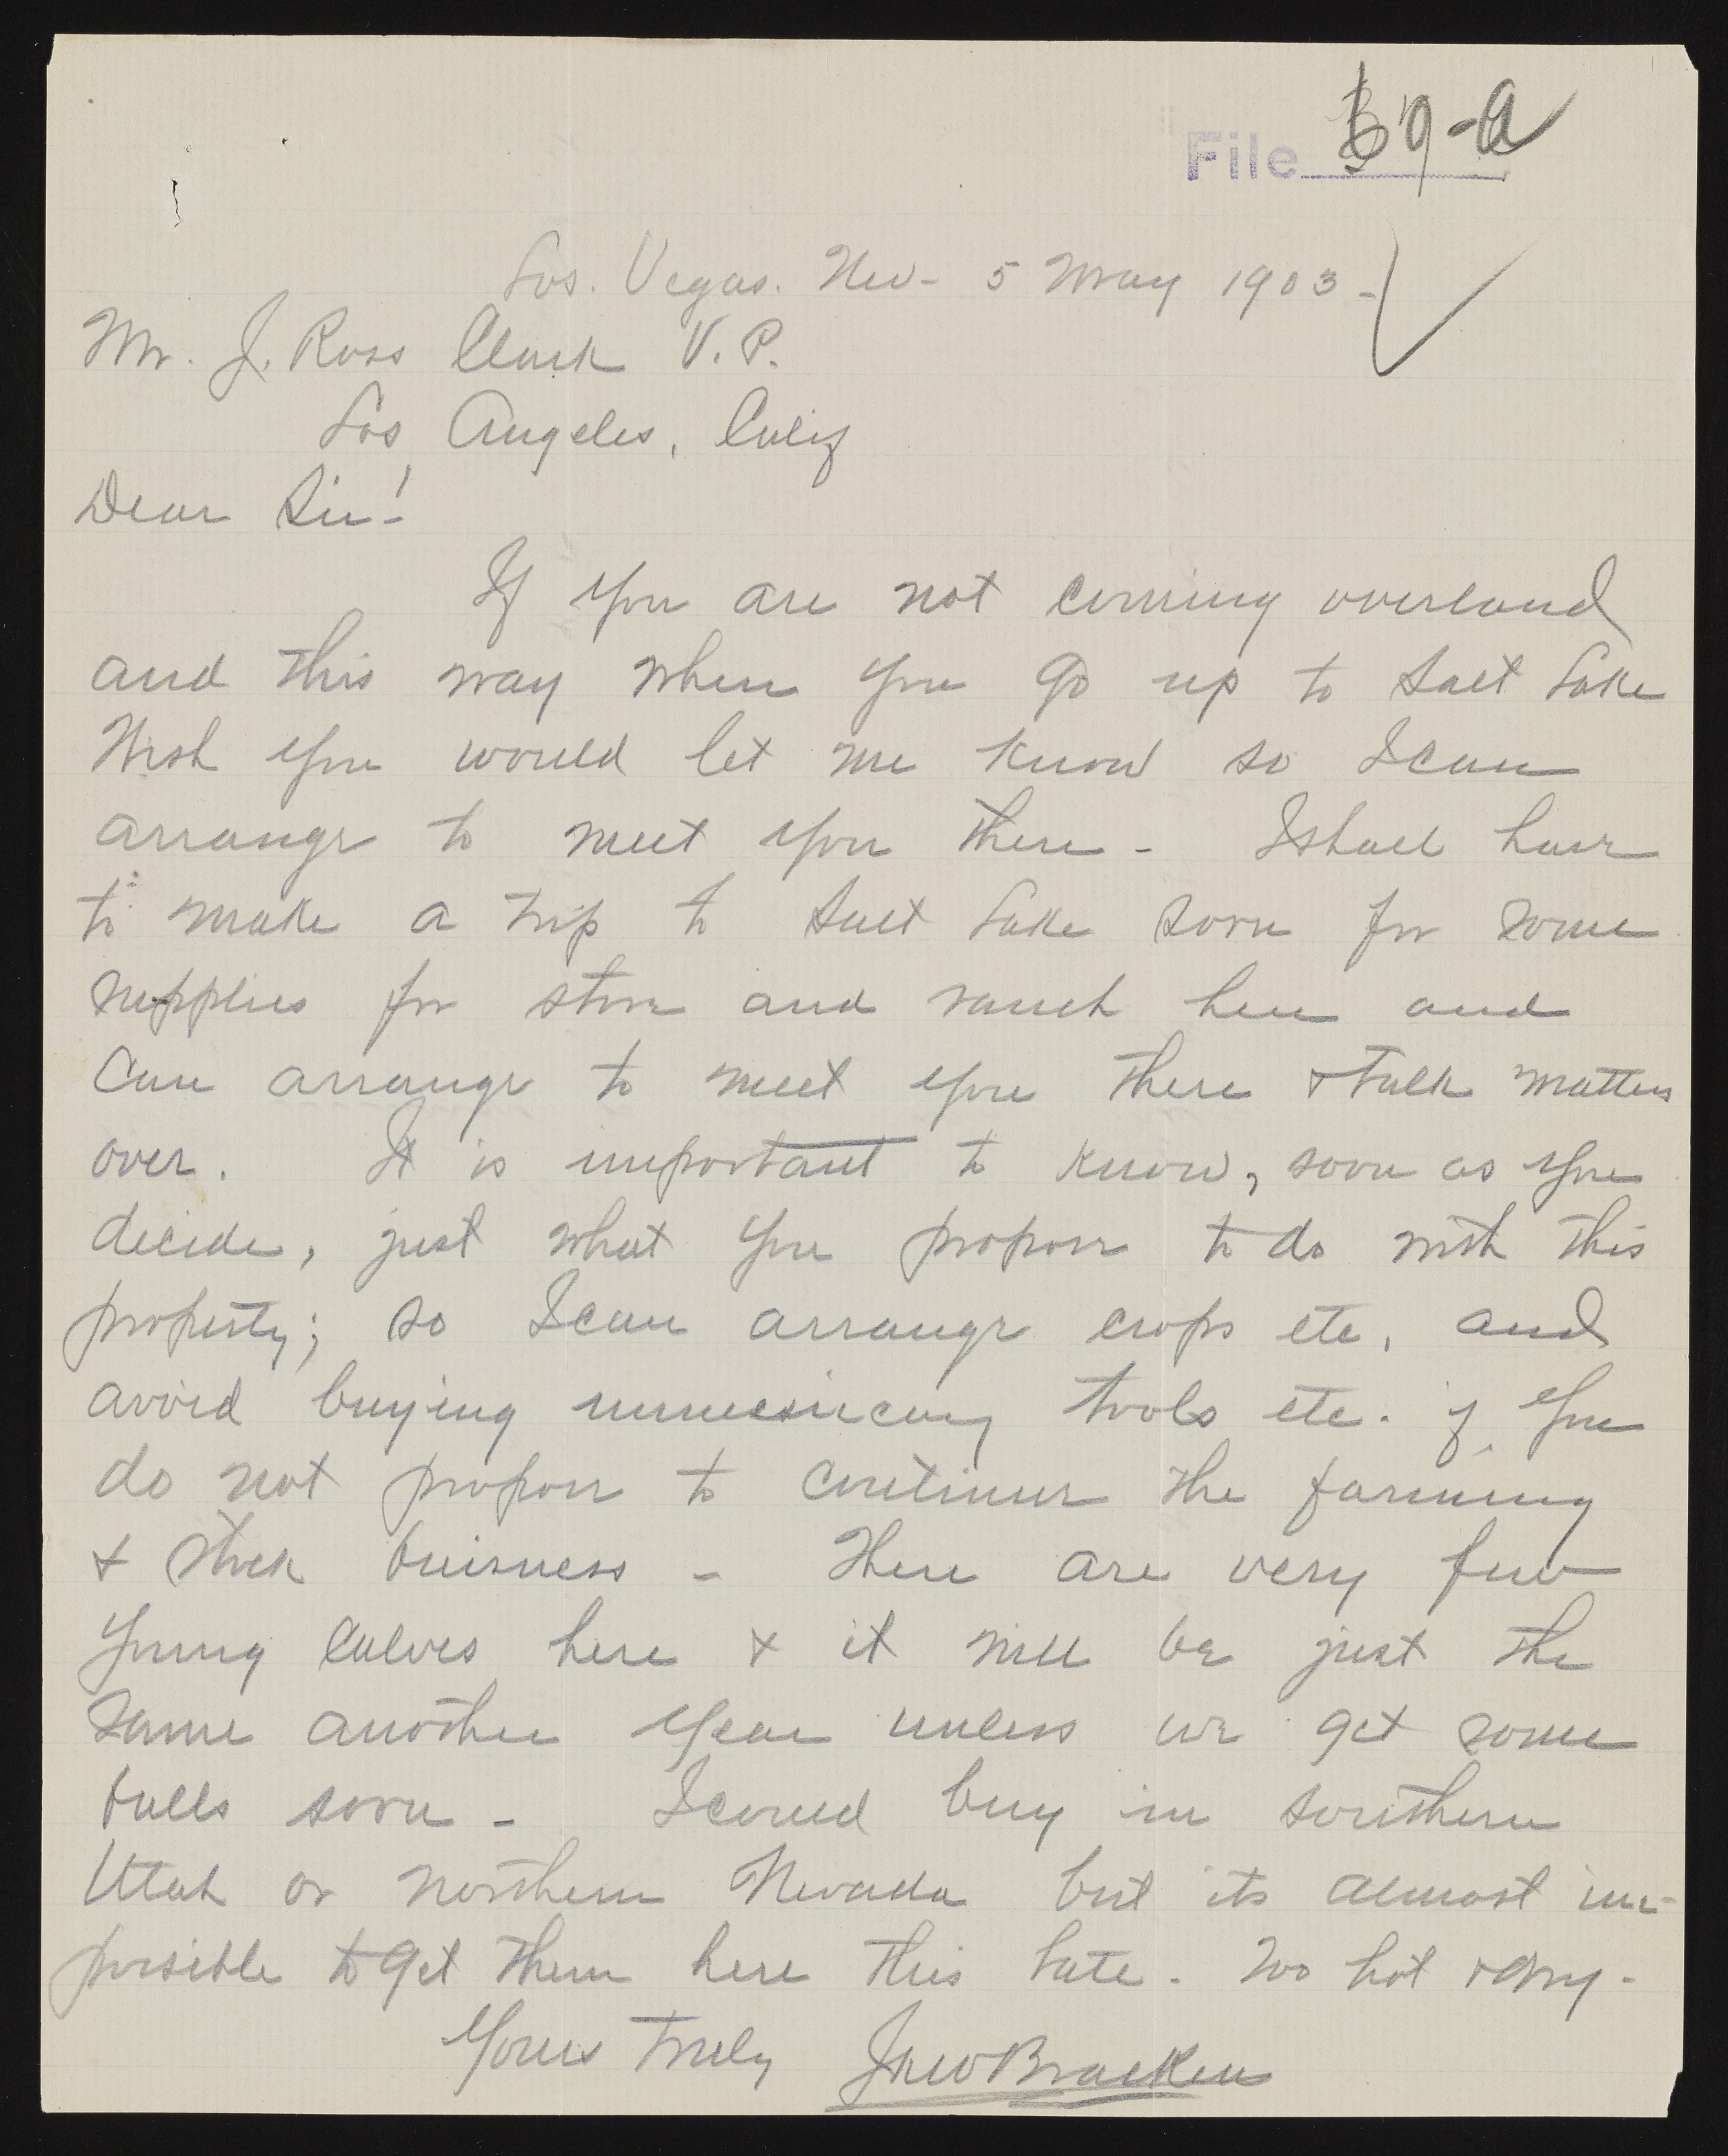 File 69-a
Los. Vegas. Nev- 5 May 1903-
Mr. J. Ross Clark V. P.
Los Angeles, Calif
Dear Sir!-
If you are not coming overland
and this way when you go up to Salt Lake
Wish you would let me know so I can
arrange to meet you there - I shall have
to make a trip to Salt Lake soon for some
supplies for store and ranch here and
Can arrange to meet you there & talk matters
over. It is important to know, soon as you
decide, just what you propose to do with this
property; so I can arrange crops etc, and
avoid buying tools etc. if you
do not propose to continue the farming
& stock buisness - There are very few
young calves here & it will be just the
same another year unless we get some
bulls soon - I could buy in southern
Utah or northern Nevada but its almost im-
possible to get them here this late. Too hot & dry-
Yours Truly Jno W Bracken